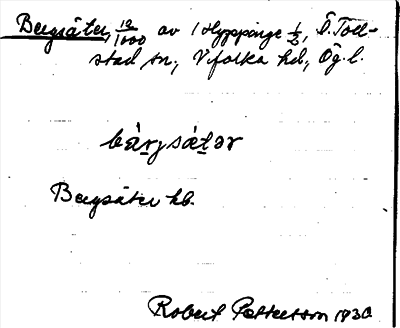 Bergsäter, 12/1000 av 1 Hyppinge 1/2, Ö. Toll-
stad sn, Vifolka hd, Ög. l.
bærjsætər
Bergsäter hb.
Robert Pettersson 1930